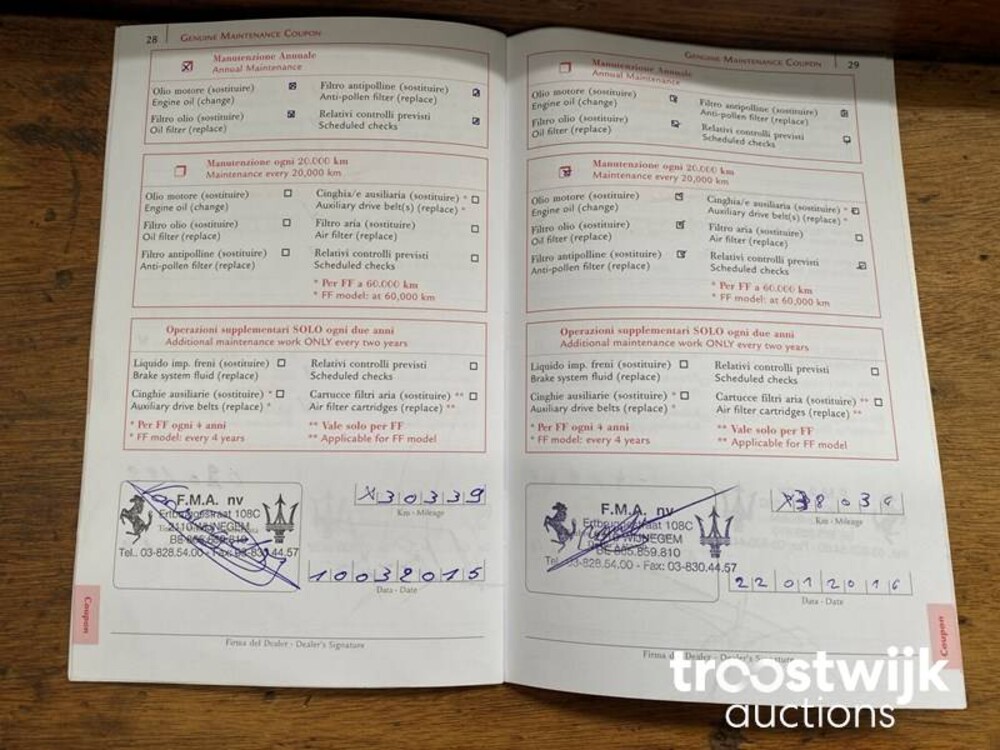 28 GENUINE MAINTENANCE COUPON
Manutenzione Annuale
Annual Maintenance
Olio motore (sostituire)
Engine oil (change)
Filtro antipolline (sostituire)
Anti-pollen filter (replace)
Filtro olio (sostituire)
Oil filter (replace)
Relativi controlli previsti
Scheduled checks
Manutenzione ogni 20.000 km
Maintenance every 20,000 km
Olio motore (sostituire)
Engine oil (change)
Cinghia/e ausiliaria (sostituire) *
Auxiliary drive belt(s) (replace) *
Filtro olio (sostituire)
Oil filter (replace)
Filtro aria (sostituire)
Air filter (replace)
Filtro antipolline (sostituire)
Anti-pollen filter (replace)
Relativi controlli previsti
Scheduled checks
* Per FF a 60.000 km
* FF model: at 60,000 km
Operazioni supplementari SOLO ogni due anni
Additional maintenance work ONLY every two years
Liquido imp. freni (sostituire)
Brake system fluid (replace)
Relativi controlli previsti
Scheduled checks
Cinghie ausiliarie (sostituire) *
Auxiliary drive belts (replace) *
Cartucce filtri aria (sostituire) **
Air filter cartridges (replace) **
* Per FF ogni 4 anni
* FF model: every 4 years
** Vale solo per FF
** Applicable for FF model
F.M.A. nv
Ertbruggestraat 108C
2110 WIJNEGEM
BE 865.859.810
Tel. 03-828.54.00 - Fax: 03-830.44.57
X30339
Km - Mileage
10032015
Data - Date
Firma del Dealer - Dealer's Signature
Coupon
GENUINE MAINTENANCE COUPON 29
Manutenzione Annuale
Annual Maintenance
Olio motore (sostituire)
Engine oil (change)
Filtro antipolline (sostituire)
Anti-pollen filter (replace)
Filtro olio (sostituire)
Oil filter (replace)
Relativi controlli previsti
Scheduled checks
Manutenzione ogni 20.000 km
Maintenance every 20,000 km
Olio motore (sostituire)
Engine oil (change)
Cinghia/e ausiliaria (sostituire) *
Auxiliary drive belt(s) (replace) *
Filtro olio (sostituire)
Oil filter (replace)
Filtro aria (sostituire)
Air filter (replace)
Filtro antipolline (sostituire)
Anti-pollen filter (replace)
Relativi controlli previsti
Scheduled checks
* Per FF a 60.000 km
* FF model: at 60,000 km
Operazioni supplementari SOLO ogni due anni
Additional maintenance work ONLY every two years
Liquido imp. freni (sostituire)
Brake system fluid (replace)
Relativi controlli previsti
Scheduled checks
Cinghie ausiliarie (sostituire) *
Auxiliary drive belts (replace) *
Cartucce filtri aria (sostituire) **
Air filter cartridges (replace) **
* Per FF ogni 4 anni
* FF model: every 4 years
** Vale solo per FF
** Applicable for FF model
F.M.A. nv
Ertbruggestraat 108C
2110 WIJNEGEM
BE 865.859.810
Tel. 03-828.54.00 - Fax: 03-830.44.57
Km - Mileage
22012016
Data - Date
Firma del Dealer - Dealer's Signature
Coupon
troostwijk
auctions